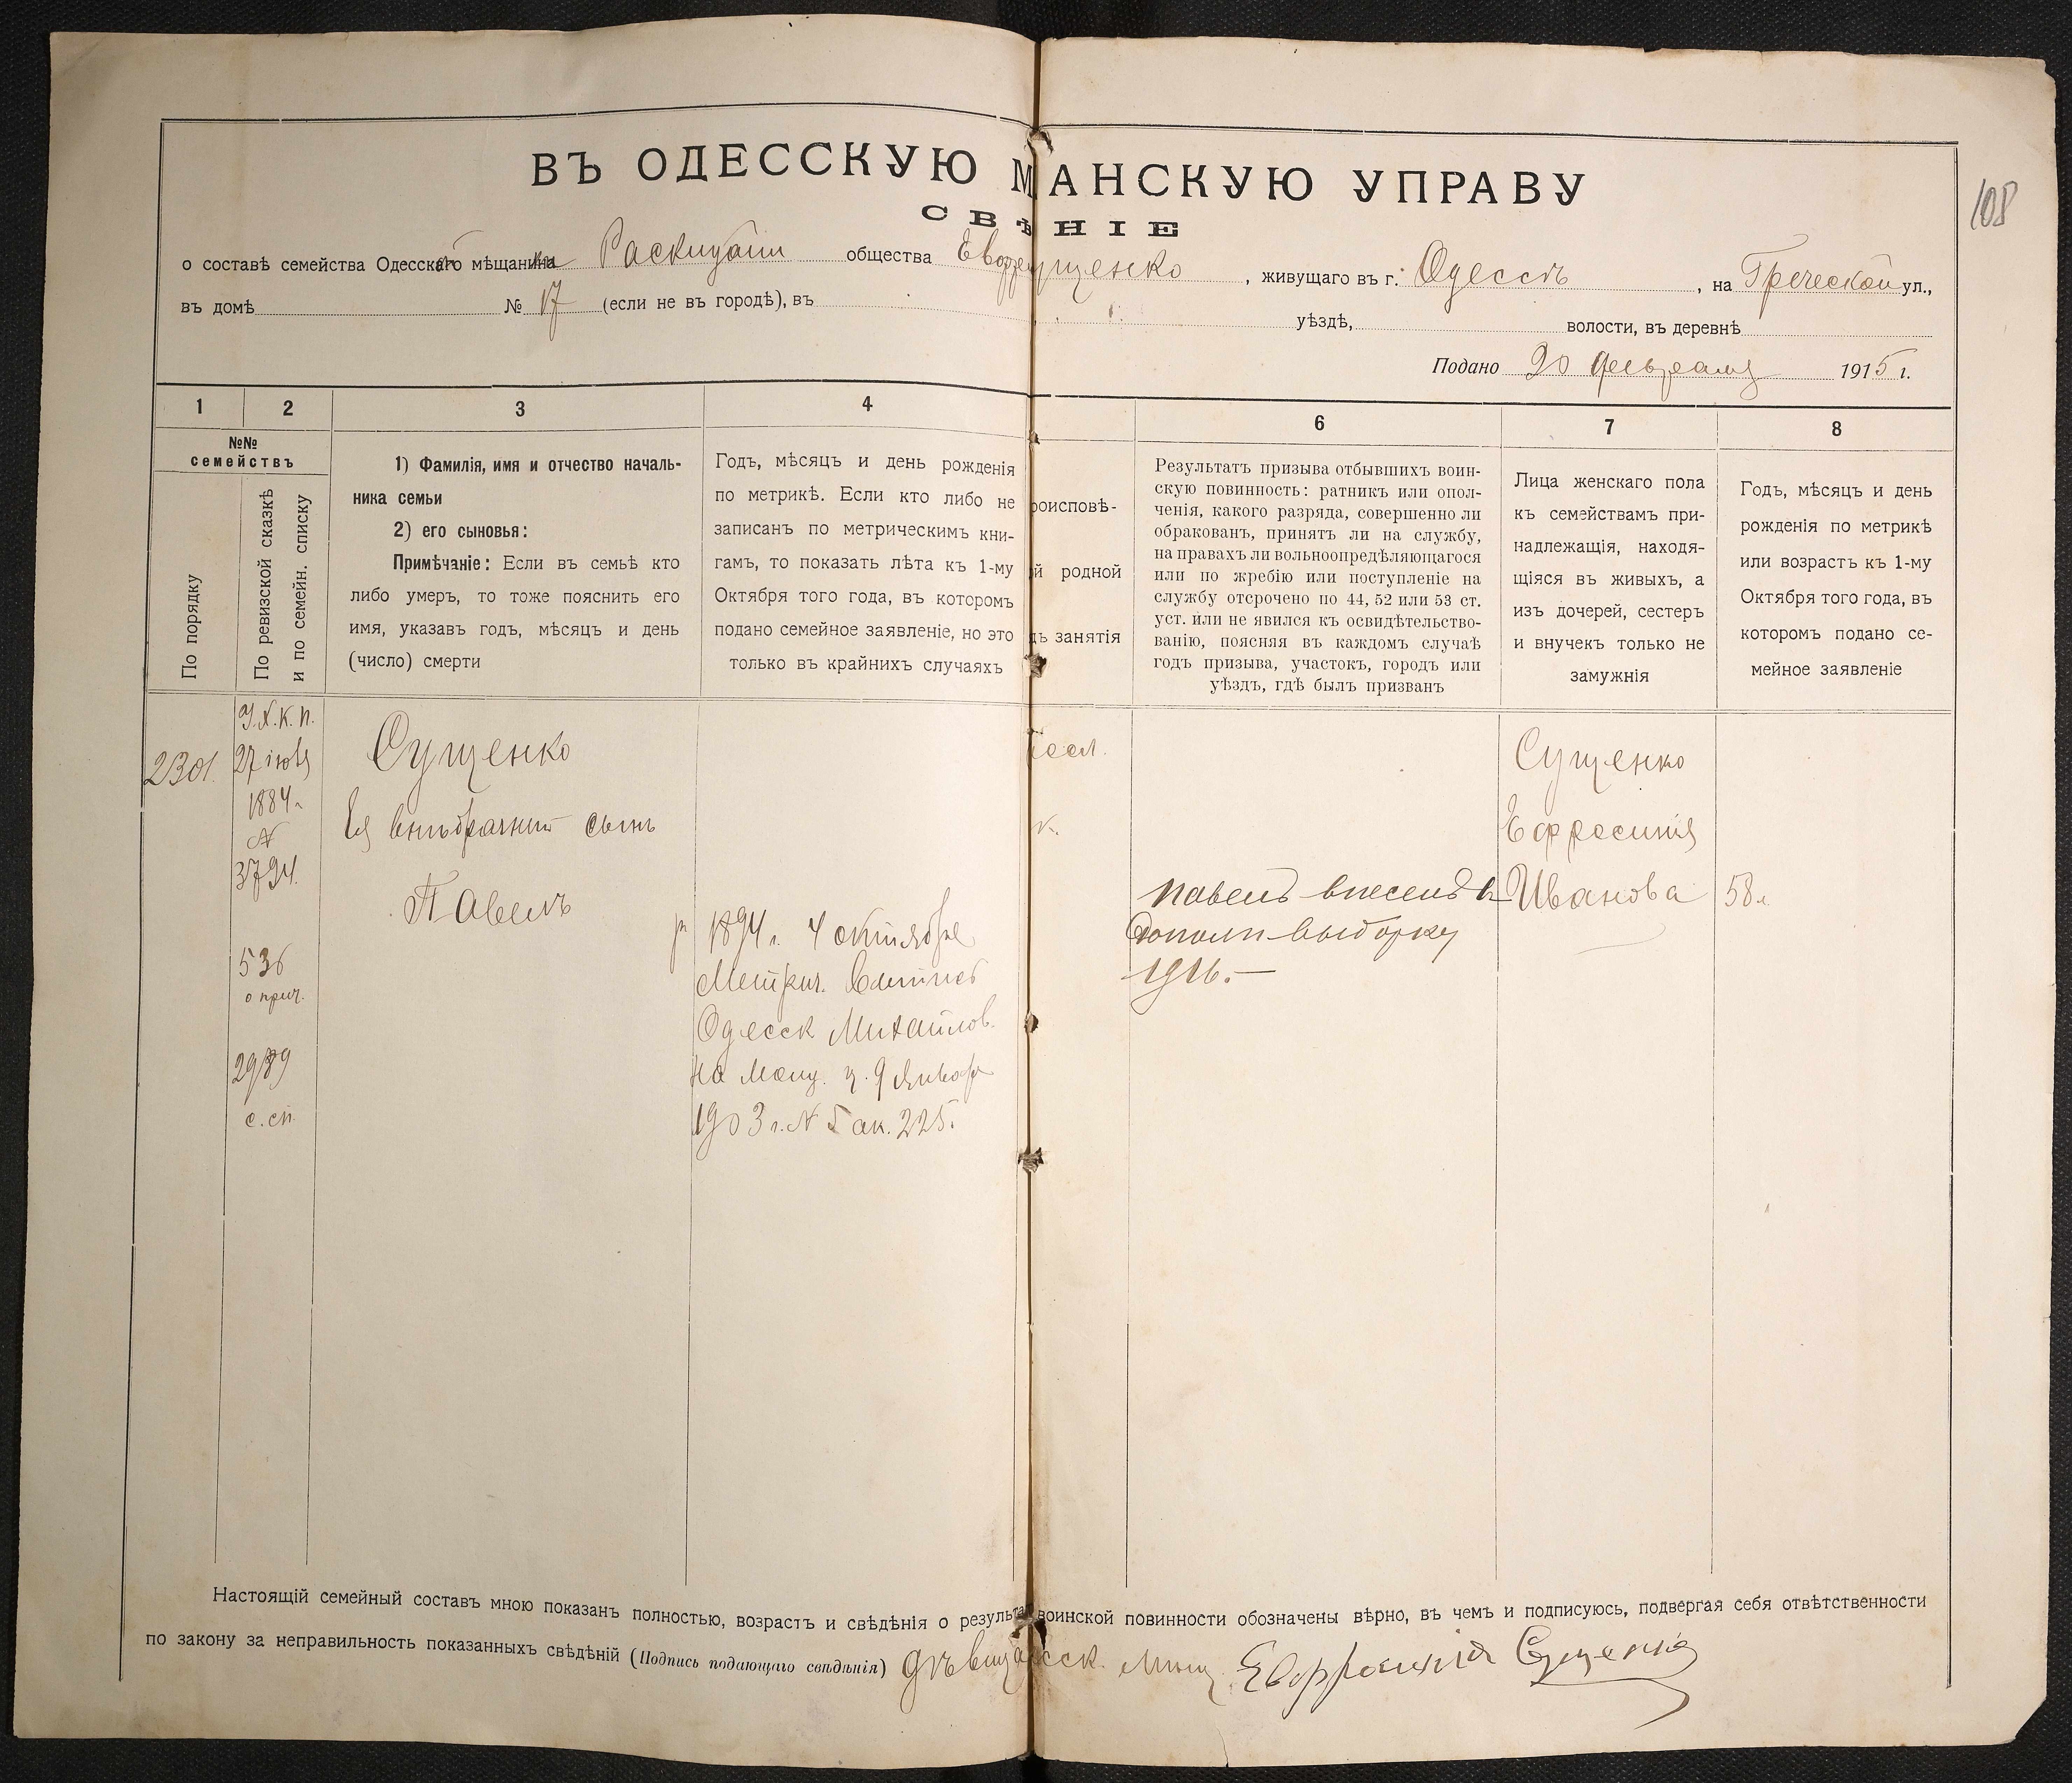 108
ВЪ ОДЕССКУЮ М АНСКУЮ УПРАВУ
СВѢ НІЕ
о составѣ семейства Одесскаго мѣщанина общества ущенко, живущаго въ г. Одессѣ, на Греческой ул.,
въ домѣ № 17 (если не въ городѣ), въ уѣздѣ, волости, въ деревнѣ
Подано 20 февраля 1915 г.
1 2 3 4 6 7 8
№№
семействъ
По порядку
По ревизской сказкѣ
и по семейн. списку
1) Фамилія, имя и отчество началь-
ника семьи
2) его сыновья:
Примѣчаніе: Если въ семьѣ кто
либо умеръ, то тоже пояснить его
имя, указавъ годъ, мѣсяцъ и день
(число) смерти
Годъ, мѣсяцъ и день рожденія
по метрикѣ. Если кто либо не
записанъ по метрическимъ кни-
гамъ, то показать лѣта къ 1-му
Октября того года, въ которомъ
подано семейное заявленіе, но это
только въ крайнихъ случаяхъ
роисповѣ-
ой родной
дъ занятія
Результатъ призыва отбывшихъ воин-
скую повинность: ратникъ или опол-
ченія, какого разряда, совершенно ли
обракованъ, принятъ ли на службу,
на правахъ ли вольноопредѣляющагося
или по жребію или поступленіе на
службу отсрочено по 44, 52 или 53 ст.
уст. или не явился къ освидѣтельство-
ванію, поясняя въ каждомъ случаѣ
годъ призыва, участокъ, городъ или
уѣздъ, гдѣ былъ призванъ
Лица женскаго пола
къ семействамъ при-
надлежащія, находя-
щіяся въ живыхъ, а
изъ дочерей, сестеръ
и внучекъ только не
замужнія
Годъ, мѣсяцъ и день
рожденія по метрикѣ
или возрастъ къ 1-му
Октября того года, въ
которомъ подано се-
мейное заявленіе
2301.
У.Х.К.П.
27 іюля
1884 г.
№
3794.
536
о прич.
2989
с. сп.
Сущенко
Ея внѣбрачный сынъ
Павелъ
р. 1894 г. 4 октября
Метрич. выпись
Одесск Михайлов.
на Молд. ц. 9 января
1903 г. № 5 ак. 225.
к.
Павелъ внесенъ въ
дополн выборку
1916.—
Сущенко
Ефросинія
Иванова
58 л.
Настоящій семейный составъ мною показанъ полностью, возрастъ и свѣдѣнія о результа воинской повинности обозначены вѣрно, въ чемъ и подписуюсь, подвергая себя отвѣтственности
по закону за неправильность показанныхъ свѣдѣній (Подпись подающаго свѣдѣнія) дѣвица сск. мѣщ. Евфросинія Сущенко